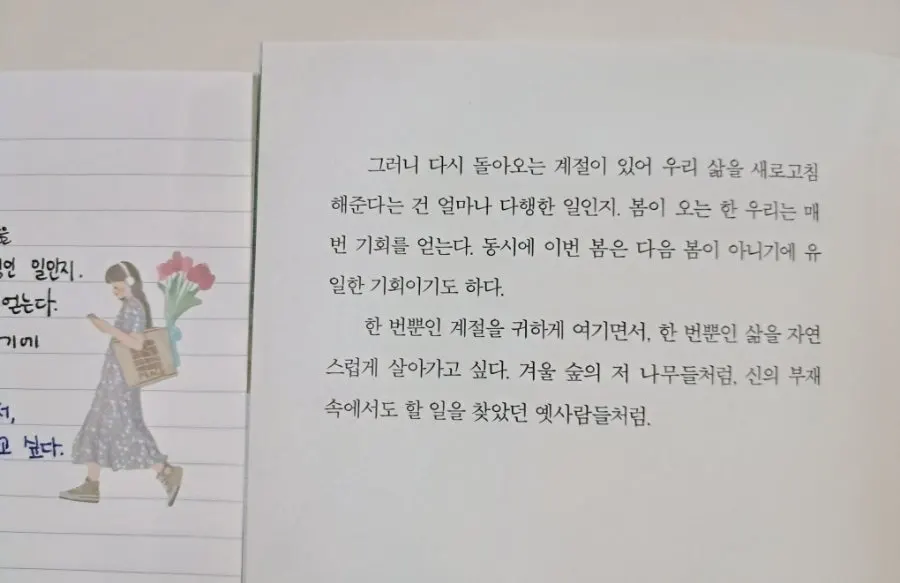 일인지.
얻는다.
기에
고 싶다.
그러니 다시 돌아오는 계절이 있어 우리 삶을 새로고침
해준다는 건 얼마나 다행한 일인지. 봄이 오는 한 우리는 매
번 기회를 얻는다. 동시에 이번 봄은 다음 봄이 아니기에 유
일한 기회이기도 하다.
한 번뿐인 계절을 귀하게 여기면서, 한 번뿐인 삶을 자연
스럽게 살아가고 싶다. 겨울 숲의 저 나무들처럼, 신의 부재
속에서도 할 일을 찾았던 옛사람들처럼.